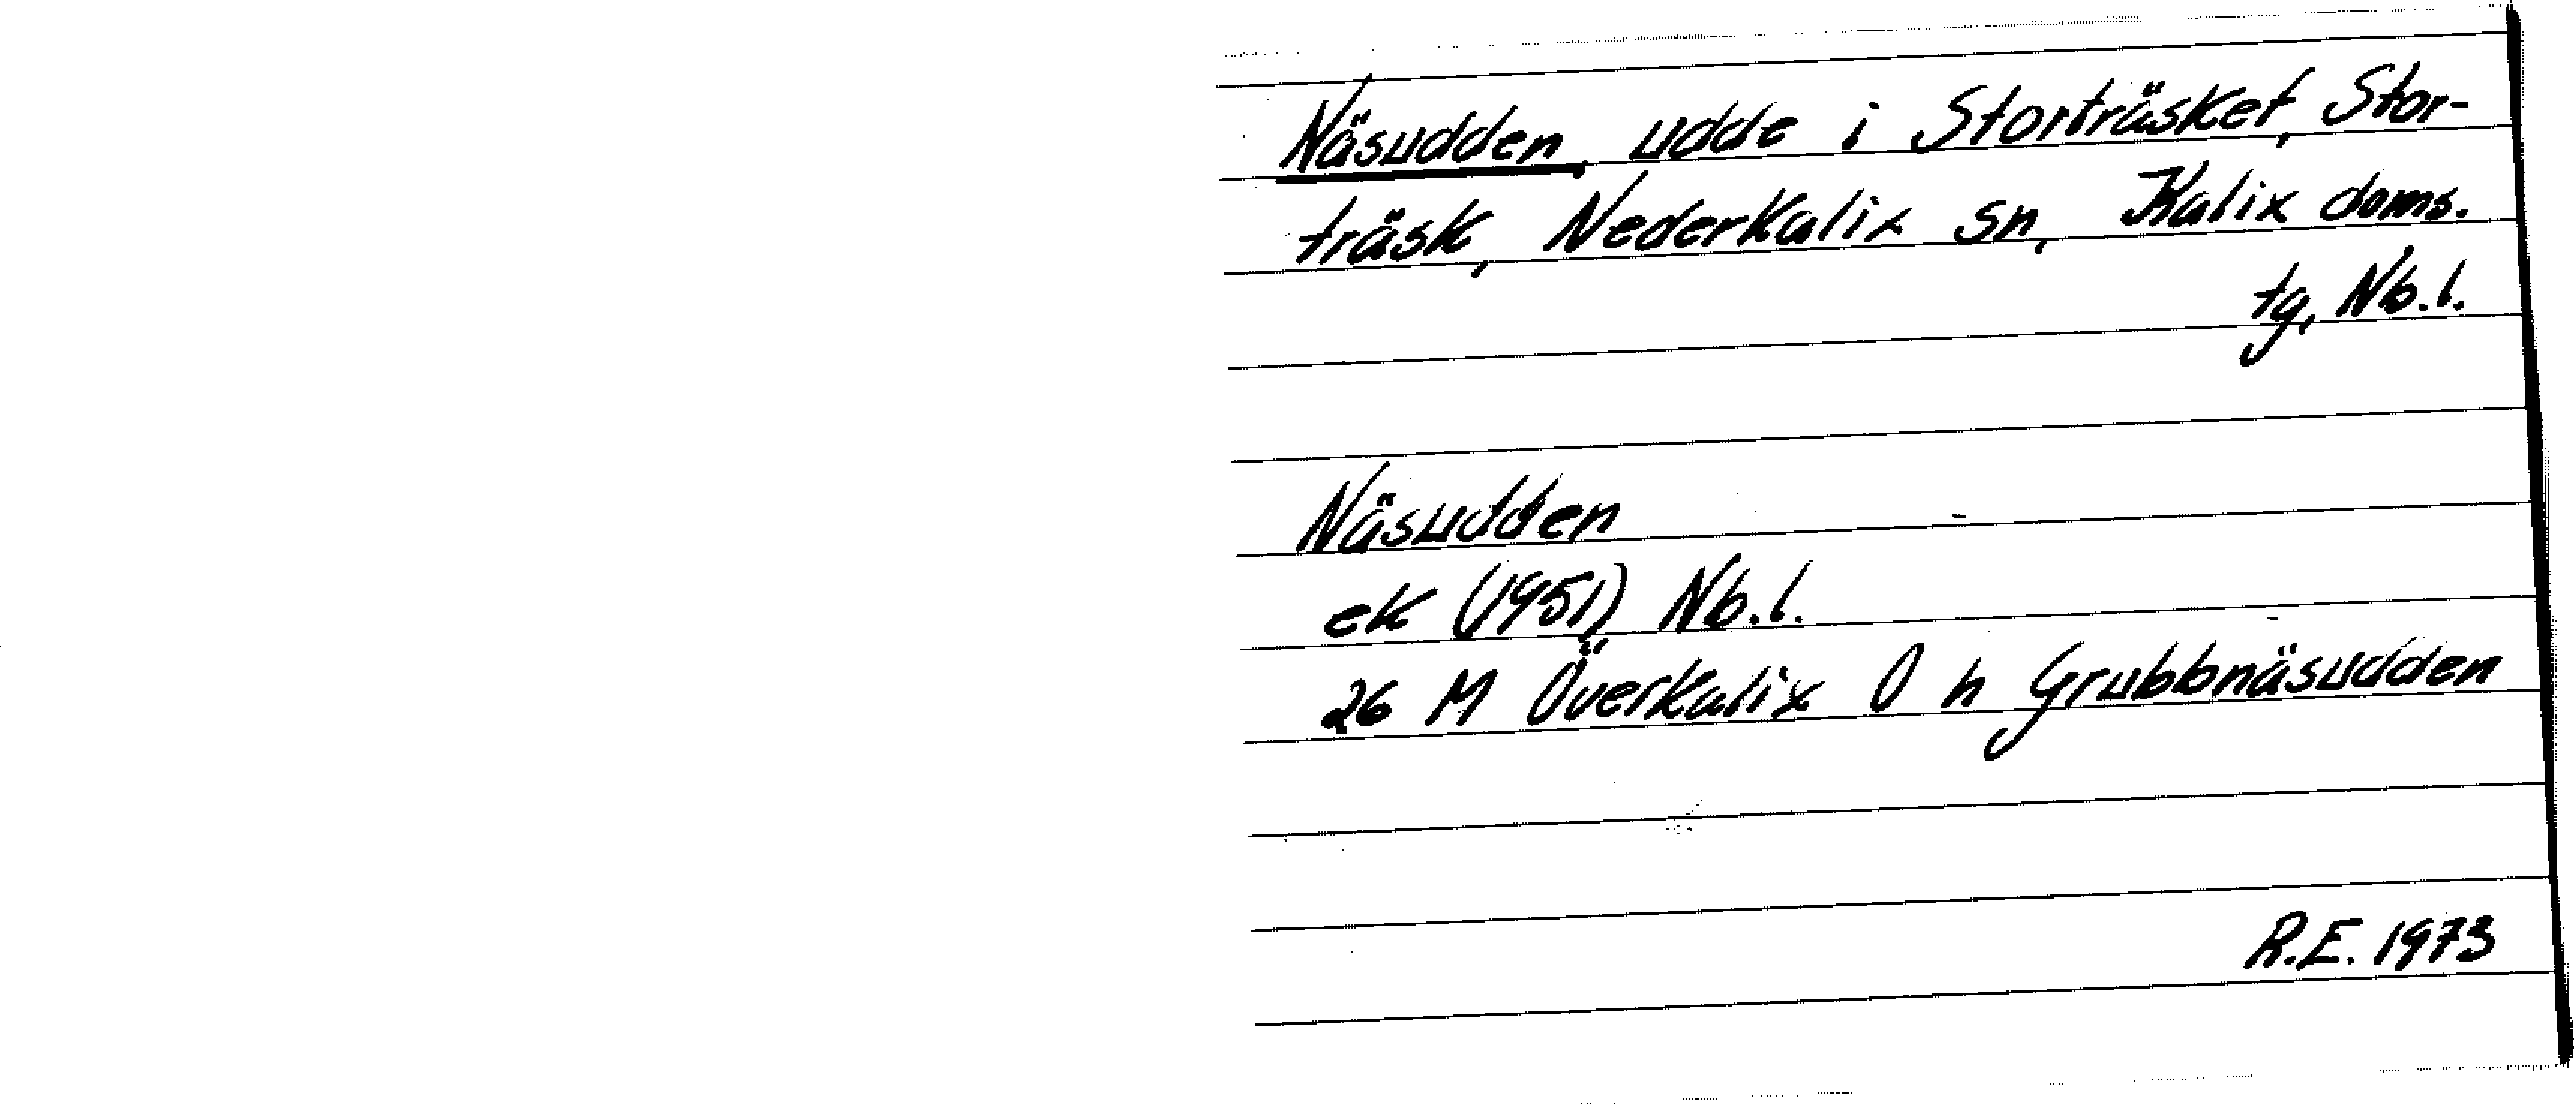 Näsudden, udde i Storträsket, Stor-
träsk, Nederkalix sn, Kalix doms.
tg, Nb.l.
Näsudden
ek (1951) Nb.l.
26 M Överkalix O h Grubbnäsudden
R.E. 1973